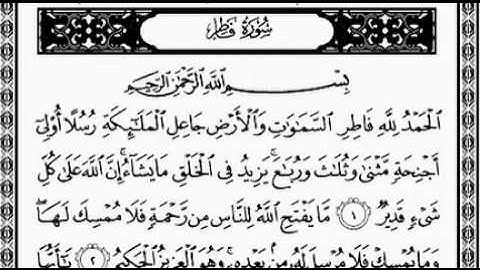 سُورَةُ فَاطِرٍ
بِسْمِ ٱللَّهِ ٱلرَّحْمَٰنِ ٱلرَّحِيمِ
ٱلْحَمْدُ لِلَّهِ فَاطِرِ ٱلسَّمَٰوَٰتِ وَٱلْأَرْضِ جَاعِلِ ٱلْمَلَٰٓئِكَةِ رُسُلًا أُو۟لِىٓ
أَجْنِحَةٍ مَّثْنَىٰ وَثُلَٰثَ وَرُبَٰعَ ۚ يَزِيدُ فِى ٱلْخَلْقِ مَا يَشَآءُ ۚ إِنَّ ٱللَّهَ عَلَىٰ كُلِّ
شَىْءٍ قَدِيرٌ ١ مَّا يَفْتَحِ ٱللَّهُ لِلنَّاسِ مِن رَّحْمَةٍ فَلَا مُمْسِكَ لَهَا ۖ
وَمَا يُمْسِكْ فَلَا مُرْسِلَ لَهُۥ مِنۢ بَعْدِهِۦ ۚ وَهُوَ ٱلْعَزِيزُ ٱلْحَكِيمُ ٢ يَٰٓأَيُّهَا